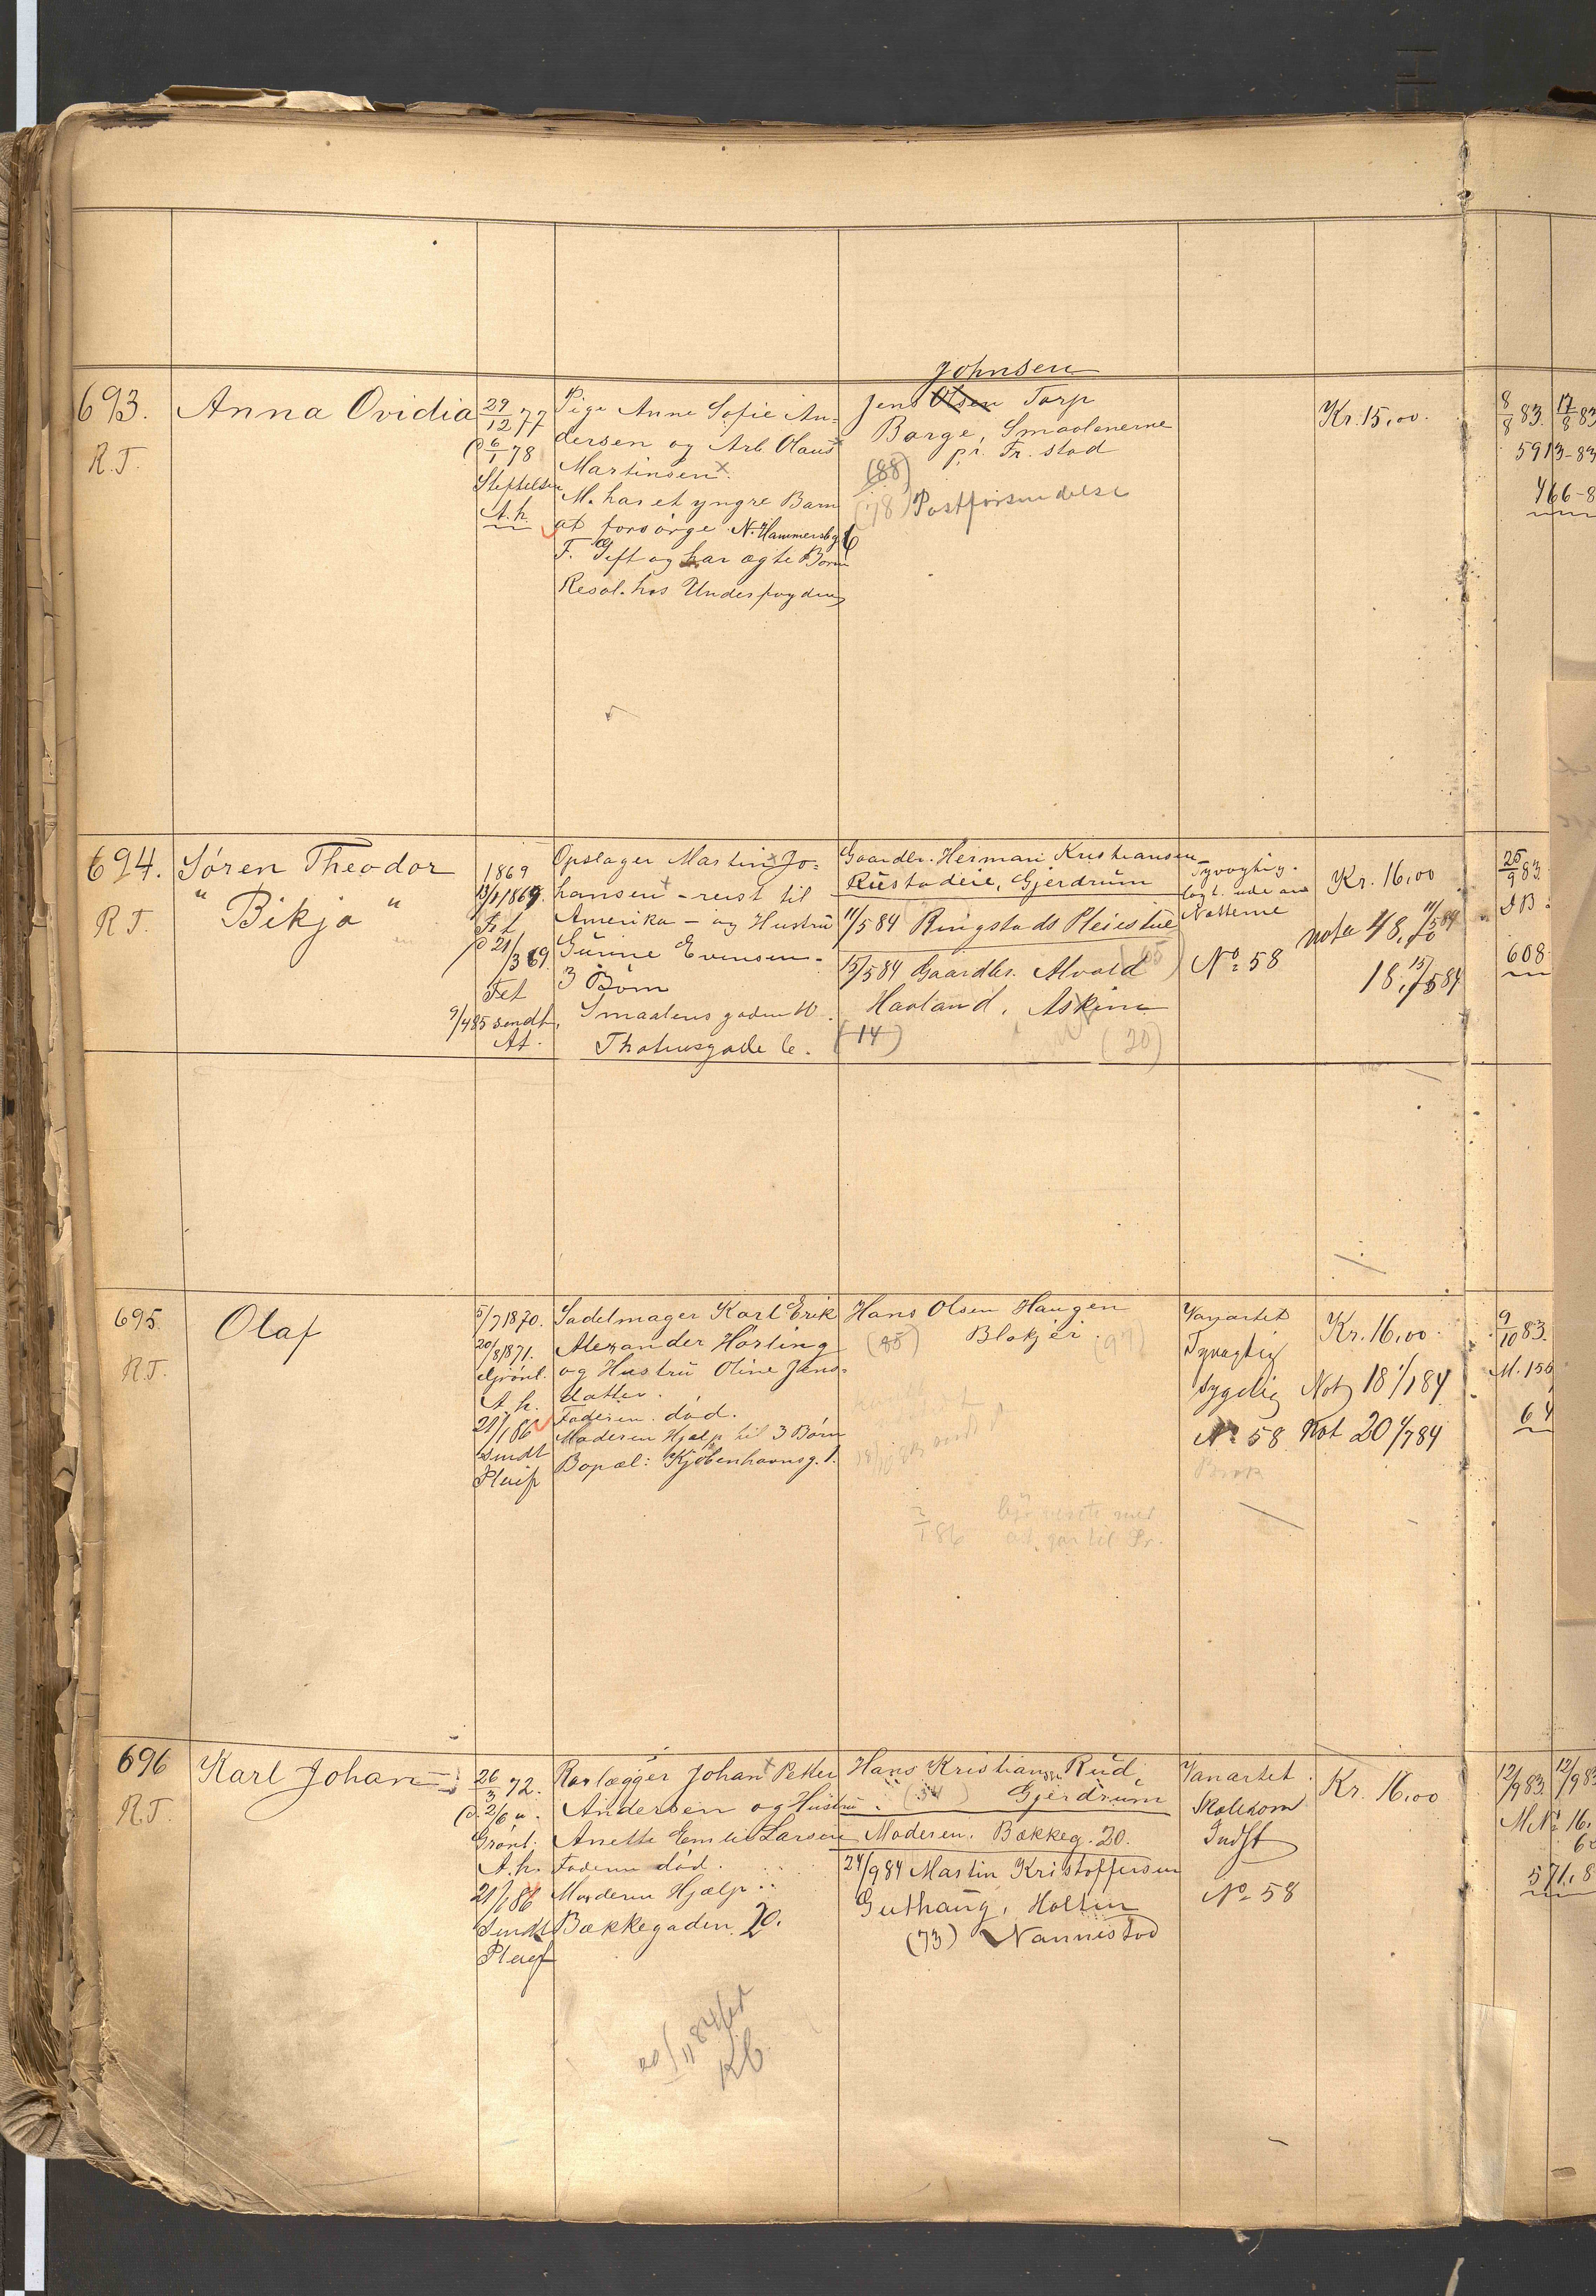 693.
R.T.
Anna Ovidia
29/12 77
6/1 78
Stiftelsen
A.h.
Pige Anne Sofie An=
dersen og Arb. Olaus
Martinsen
M. har et yngre Barn
at forsørge N. Hammersbg 6
F. Gift og har ægte Børn
Resol. hos Underfogden
Johnsen
Jens Olsen Torp
Borge, Smaalenerne
pr. Fr. stad
(88)
(78) Postforsendelse
Kr. 15,00.
8/8 83. 17/8 83
5913-83
466-8
694.
R.T.
Søren Theodor
"Bikja"
1869
13/1/1869.
Fet
21/3 69
Fet
9/4 85 sendt
At.
Opslager Martin Jo=
hansen - reist til
Amerika - og Hustru
Gunine Evensen.
3 Børn
Smaalensgaden 10.
Thorhusgade 6.
Gaardbr. Herman Kristiansen
Rustadeie, Gjerdrum
11/5 84 Ringstads Pleiestue
15/5 84 Gaardbr. Alvald
Haaland, Askim
(14)
(20)
Tyvagtig.
Nætterne
No 58
Kr. 16,00
Nota 48, 11/5 84
18, 15/5 84
25/9 83
DB.
608
695.
R.T.
Olaf
5/7 1870.
20/8 1871.
Grønl.
A.h.
21/1 86
Sendt
Pleief
Sadelmager Karl Erik
Alexander Hørling
og Hustru Oline Jans=
datter.
Faderen død.
Moderen Hjælp til 3 Børn
Bopæl: Kjøbenhavnsg. 1.
Hans Olsen Haugen
(85) Blakjer. (97)
2/1 86
Vanartet
Tyvagtig
Sygelig
No 58
Kr. 16,00.
Not 18 1/1 84
Not 20 4/7 84
9/10 83.
M. 156
64
696
R.T.
Karl Johan
26/3 72.
2/6 "
Grønl.
A.h.
21/1 86
Sendt
Pleief
Rørlægger Johan Petter
Andersen og Hustru
Anette Emilie Larsen
Faderen død.
Moderen Hjælp
Bækkegaden 20.
20/11 84
Hans Kristiansen Rud,
(34) Gjerdrum
Moderen. Bækkeg. 20.
24/9 84 Martin Kristoffersen
Guthaug, Holter
(73) Nannestad
Vanartet.
Skolekom
Indst
No 58
Kr. 16,00
12/9 83. 12/9 83
M No 16.
571.8